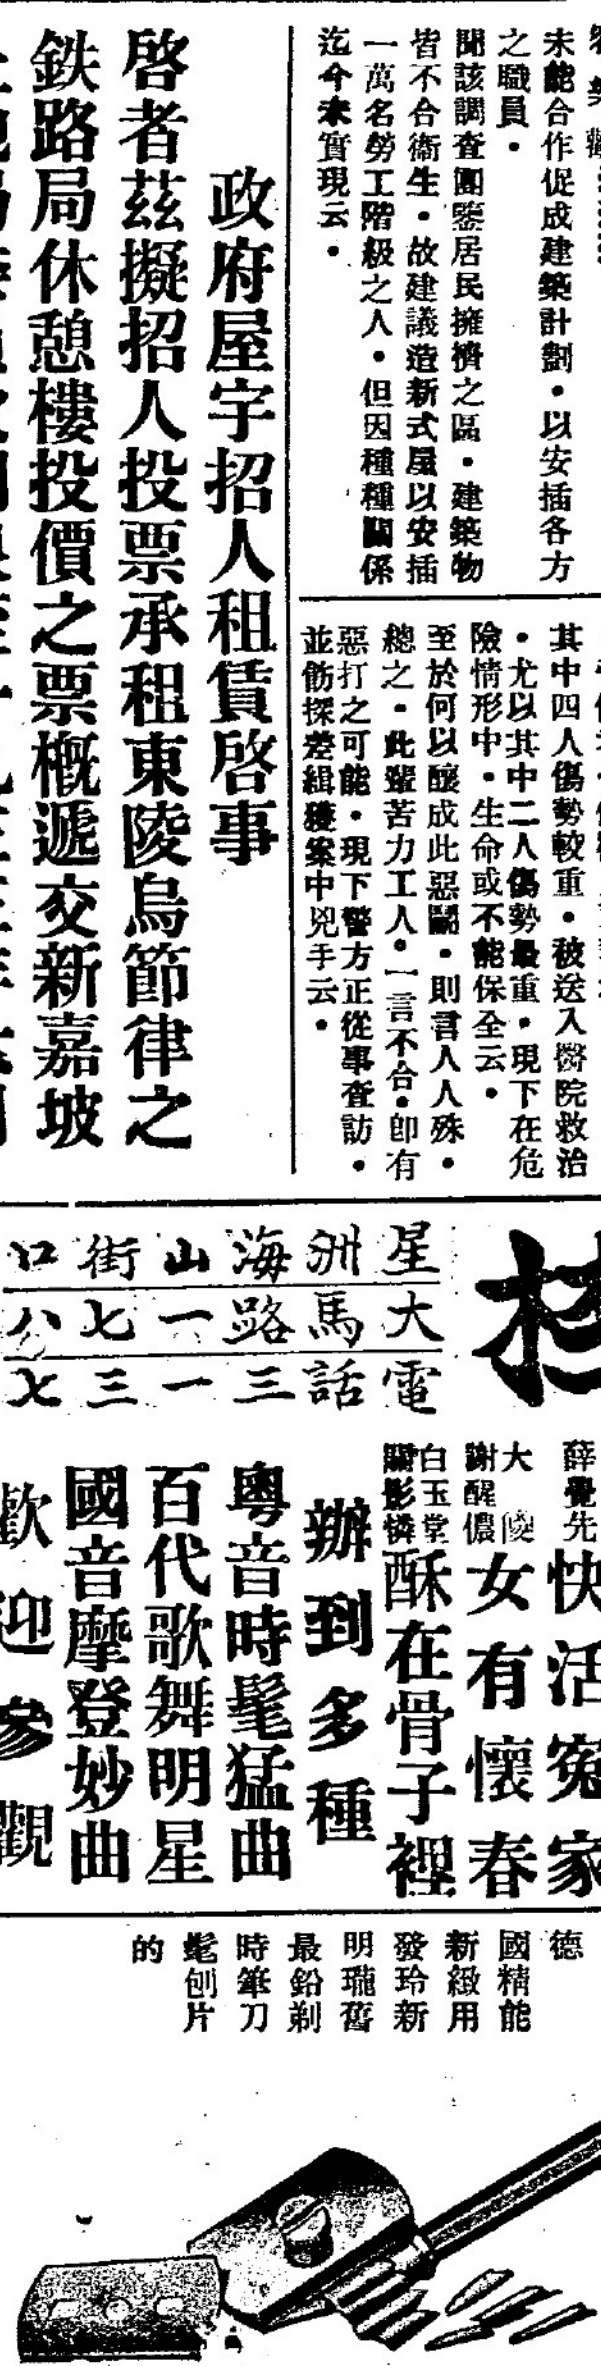 未能合作促成建築計劃·以安插各方
之職員·
聞該調查團鑒居民擁擠之區·建築物
皆不合衞生·故建議造新式屋以安插
一萬名勞工階級之人·但因種種關係
迄今未實現云·
其中四人傷勢較重·被送入醫院救治
·尤以其中二人傷勢最重·現下在危
險情形中·生命或不能保全云·
至於何以釀成此惡鬭·則言人人殊·
總之·此輩苦力工人·一言不合·卽有
惡打之可能·現下警方正從事查訪·
並飭探差緝獲案中兇手云·
政府屋宇招人租賃啓事
啓者茲擬招人投票承租東陵烏節律之
鉄路局休憩樓投價之票概遞交新嘉坡
星洲海山街口
大馬路一七八
電話三一三七
薛覺先
快活寃家
大傻
謝醒儂
女有懷春
白玉堂
關影憐
酥在骨子裡
辦到多種
粵音時髦猛曲
百代歌舞明星
國音摩登妙曲
歡迎參觀
德國新發明最時髦的
精緻玲瓏鉛筆刨
能用新舊剃刀片